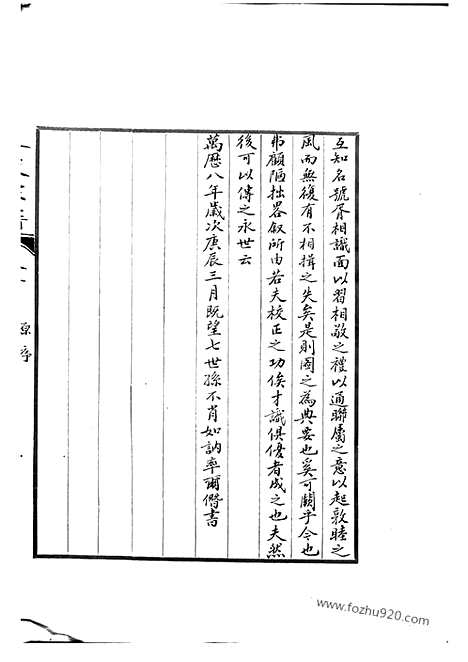 互知名號胥相識面以習相敬之禮以通聯屬之意以起敦睦之
風而無復有不相揖之失矣是則圖之為典要也奚可闕乎令也
弗顧陋拙畧叙所由若夫校正之功俟才識俱優者成之也夫然
後可以傳之永世云
萬歷八年歲次庚辰三月既望七世孫不肖如訥率爾僭書
原序
www.fozhu920.com